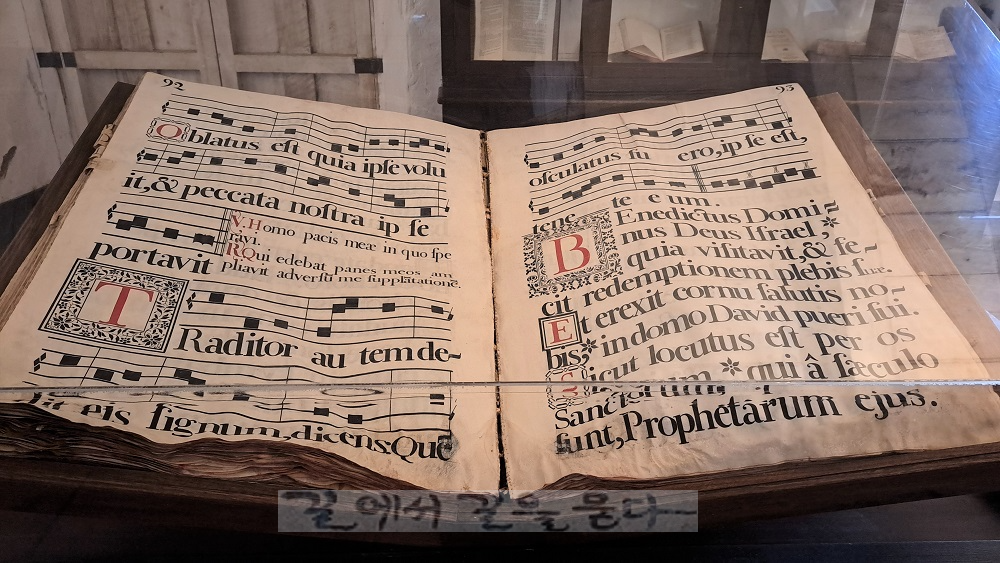 92
Oblatus est quia ipse volu
it, & peccata nostra ip se
portavit
V. Homo pacis meæ in quo spe
ravi.
R. Qui edebat panes meos
pliavit adversu me supplātatione.
Traditor au tem de-
dit eis signum, dicens: Que
93
osculatus fu ero, ip se est,
tene te e um.
BEnedictus Domi-
nus Deus Israel,*
quia visitavit, & fe-
cit redemptionem plebis suæ.
Et erexit cornu salutis no-
bis,* in domo David pueri sui.
Sicut locutus est per os
Sanctorum, * qui â sæculo
sunt, Prophetarum ejus.
길에서 길을 묻다